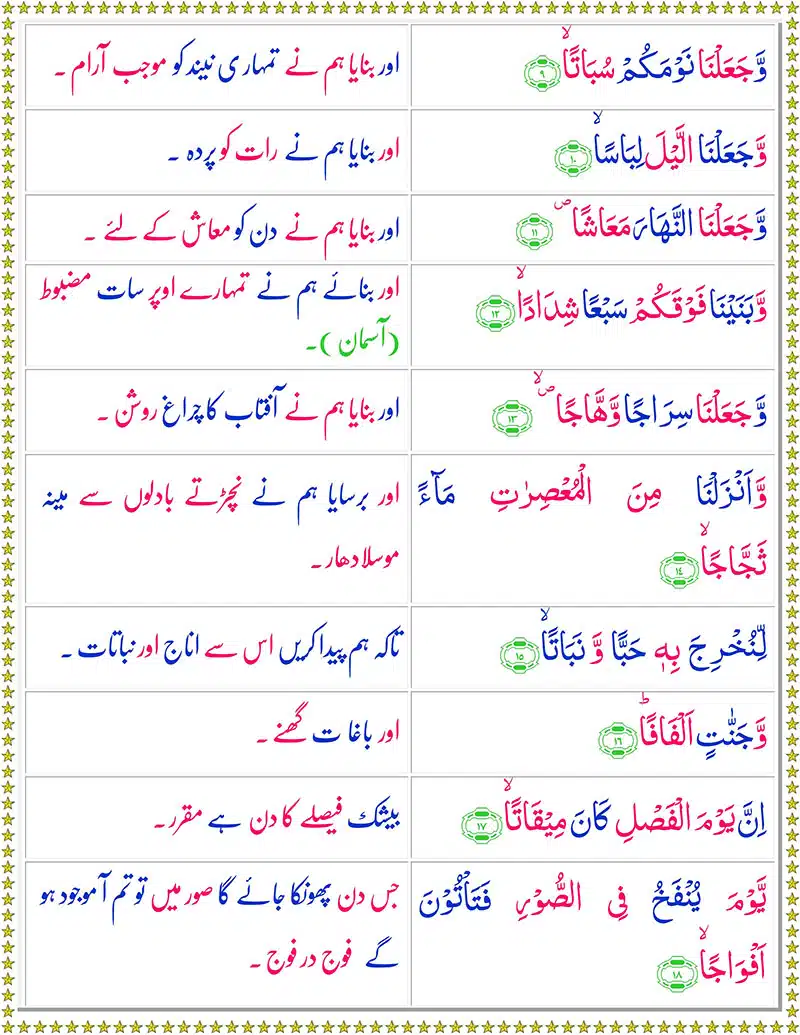 وَّجَعَلْنَا نَوْمَكُمْ سُبَاتًاۙ ٩
اور بنایا ہم نے تمہاری نیند کو موجب آرام ۔
وَّجَعَلْنَا الَّيْلَ لِبَاسًاۙ ١٠
اور بنایا ہم نے رات کو پردہ ۔
وَّجَعَلْنَا النَّهَارَ مَعَاشًاۖ ١١
اور بنایا ہم نے دن کو معاش کے لئے ۔
وَّبَنَيْنَا فَوْقَكُمْ سَبْعًا شِدَادًاۙ ١٢
اور بنائے ہم نے تمہارے اوپر سات مضبوط
(آسمان )۔
وَّجَعَلْنَا سِرَاجًا وَّهَّاجًاۙۖ ١٣
اور بنایا ہم نے آفتاب کا چراغ روشن ۔
وَّاَنْزَلْنَا مِنَ الْمُعْصِرٰتِ مَآءً
ثَجَّاجًاۙ ١٤
اور برسایا ہم نے نچڑتے بادلوں سے مینہ
موسلا دھار ۔
لِّنُخْرِجَ بِهٖ حَبًّا وَّ نَبَاتًاۙ ١٥
تاکہ ہم پیدا کریں اس سے اناج اور نباتات ۔
وَّجَنّٰتٍ اَلْفَافًاؕ ١٦
اور باغا ت گھنے ۔
اِنَّ يَوْمَ الْفَصْلِ كَانَ مِيْقَاتًاۙ ١٧
بیشک فیصلے کا دن ہے مقرر ۔
يَّوْمَ يُنْفَخُ فِى الصُّوْرِ فَتَاْتُوْنَ
اَفْوَاجًاۙ ١٨
جس دن پھونکا جائے گا صور میں تو تم آ موجود ہو
گے فوج در فوج ۔